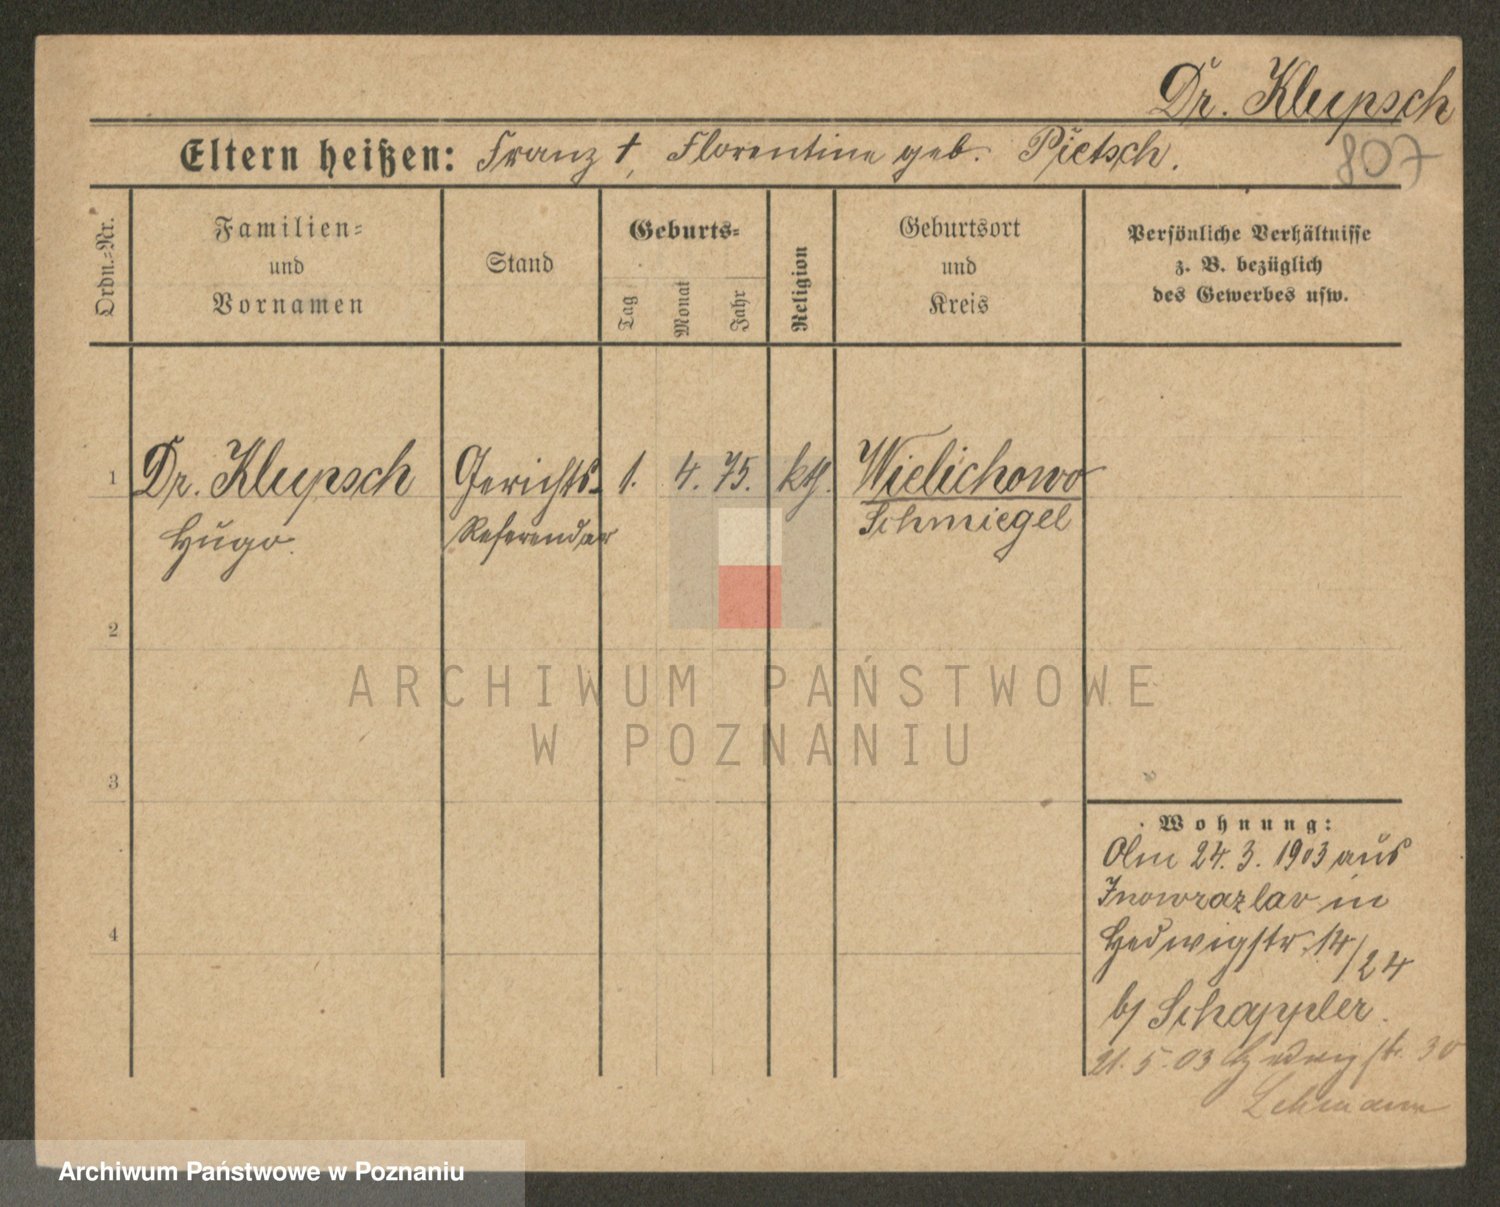 Dr. Klupsch
807
Eltern heißen: Franz †, Florentine geb. Pietsch.
Ordn.-Nr.
Familien-
und
Vornamen
Stand
Geburts-
Tag
Monat
Jahr
Religion
Geburtsort
und
Kreis
Persönliche Verhältnisse
z. B. bezüglich
des Gewerbes usw.
1 Dr. Klupsch Gerichts- 1. 4. 75. kth. Wielichowo
Hugo. Referendar Schmiegel
2
ARCHIWUM PAŃSTWOWE
W POZNANIU
3
Wohnung:
Am 24. 3. 1903 aus
Inowrazlav in
4
Hedwigstr. 14/24
b/ Schappler.
21. 5. 03 Hedwigstr. 30
Lehmann
Archiwum Państwowe w Poznaniu